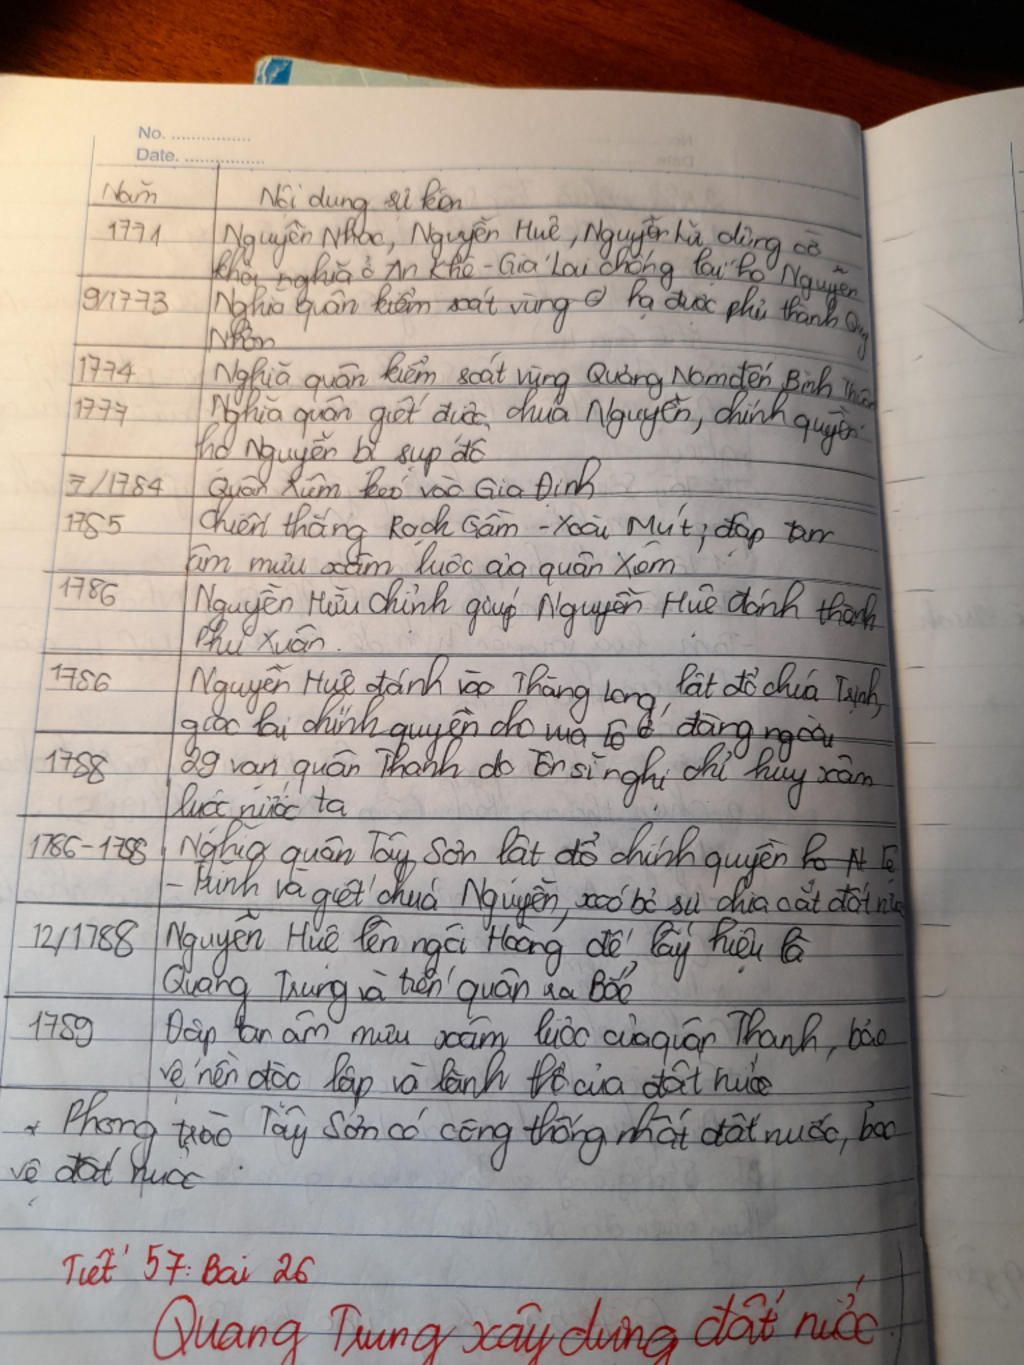 No. ...............
Date. ................
Năm Nội dung sự kiện
1771 Nguyễn Nhạc, Nguyễn Huệ, Nguyễn Lữ dựng cờ
khởi nghĩa ở An Khê - Gia Lai chống lại họ Nguyễn
9/1773 Nghĩa quân kiểm soát vùng hạ được phủ thành Quy
Nhơn
1774 Nghĩa quân kiểm soát vùng Quảng Nam đến Bình Thuận
1777 Nghĩa quân giết được chúa Nguyễn, chính quyền
họ Nguyễn bị sụp đổ
7/1784 Quân Xiêm kéo vào Gia Định
1785 Chiến thắng Rạch Gầm - Xoài Mút, đập tan
âm mưu xâm lược của quân Xiêm
1786 Nguyễn Hữu Chỉnh giúp Nguyễn Huệ đánh thành
Phú Xuân.
1786 Nguyễn Huệ đánh vào Thăng Long, lật đổ chúa Trịnh,
giao lại chính quyền cho vua Lê ở đàng ngoài
1788 29 vạn quân Thanh do Tôn sĩ nghị chỉ huy xâm
lược nước ta
1786-1788 Nghĩa quân Tây Sơn lật đổ chính quyền họ N Lê
- Trịnh và giết chúa Nguyễn, xoá bỏ sự chia cắt đất nước
12/1788 Nguyễn Huệ lên ngôi Hoàng đế, lấy hiệu là
Quang Trung và tiến quân ra Bắc
1789 Đập tan âm mưu xâm lược của quân Thanh, bảo
vệ nền độc lập và lãnh thổ của đất nước
* Phong trào Tây Sơn có công thống nhất đất nước, bảo
vệ đất nước.
Tiết 57: Bài 26
Quang Trung xây dựng đất nước.